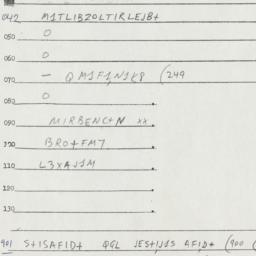 042 M1TLIBZOLTIRLEJB+
050 0
060 0
070 — QM1F1N1K8 (249
080 0
090 MIRBENC+N xx
100 BRO+FM7
110 L3XAJ1M
120
130
901 S+ISAFID+ QGL JES+IJ1S AFID+ (900 (